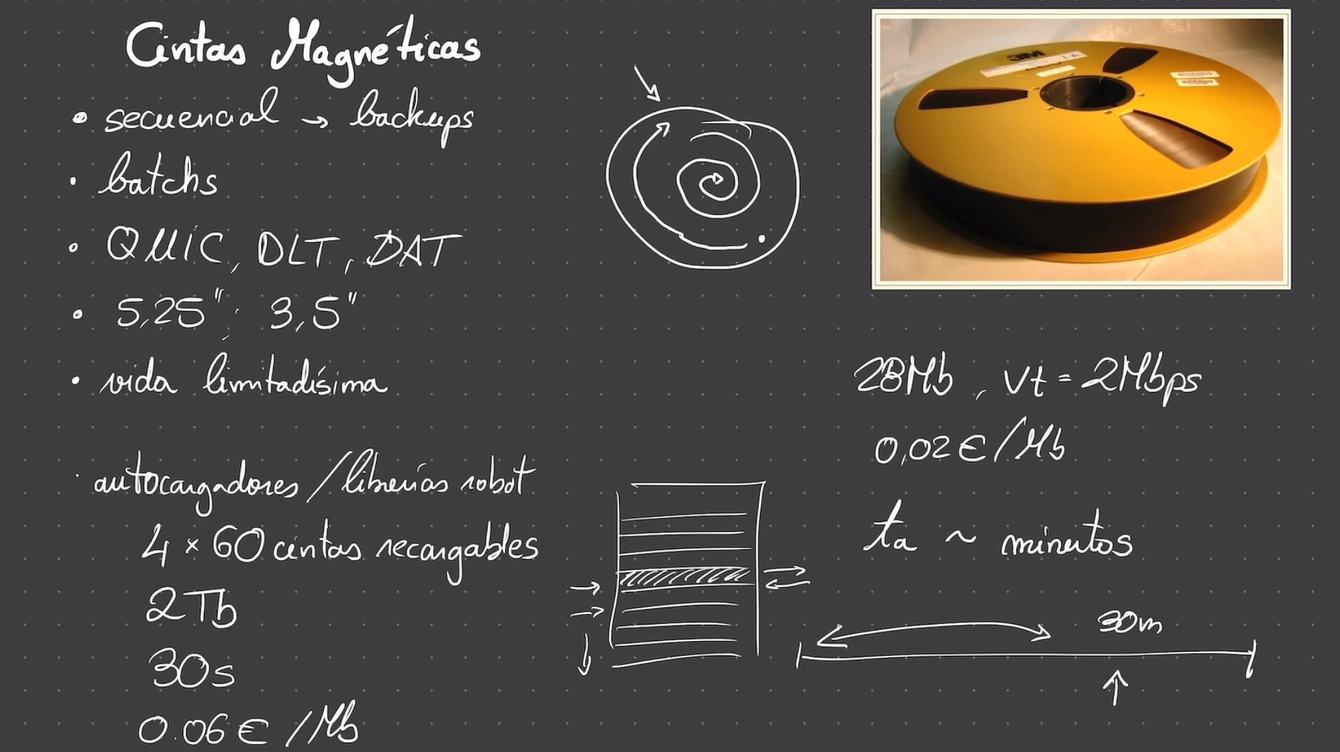 Cintas Magnéticas
• secuencial → backups
• batchs
• QUIC, DLT, DAT
• 5,25"; 3,5"
• vida limitadísima
• autocargadores / librerías robot
4 × 60 cintas recargables
2Tb
30s
0.06€/Mb
3M
28Mb, Vt = 2Mbps
0,02€/Mb
ta ~ minutos
30m